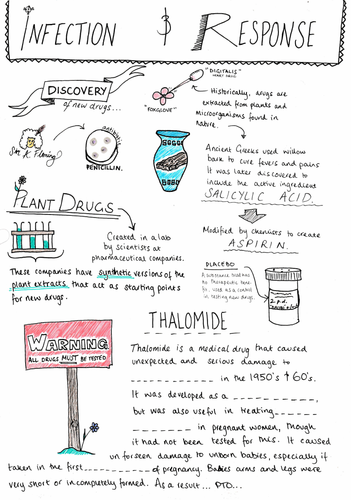 INFECTION & RESPONSE
DISCOVERY
of new drugs...
"DIGITALIS"
HEART DRUG
"FOXGLOVE"
Historically, drugs are
extracted from plants and
microorganisms found in
nature.
Fleming
PENICILLIN.
Ancient Greeks used willow
bark to cure fevers and pains
It was later discovered to
include the active ingredient
SALICYLIC ACID.
Modified by chemists to create
ASPIRIN.
PLANT DRUGS
Created in a lab
by scientists at
pharmaceutical companies.
These companies have synthetic versions of the
plant extracts that act as starting points
for new drugs.
PLACEBO
A substance that has
no therapeutic
used as a control
in testing new drugs.
THALOMIDE
WARNING
ALL DRUGS MUST BE TESTED
Thalomide is a medical drug that caused
unexpected and serious damage to
____________ in the 1950's & 60's.
It was developed as a ____________,
but was also useful in treating ______
__________ in pregnant women, though
it had not been tested for this. It caused
unforseen damage to unborn babies, especially if
taken in the first __________ of pregnancy. Babies arms and legs were
very short or incompletely formed. As a result... PTO...